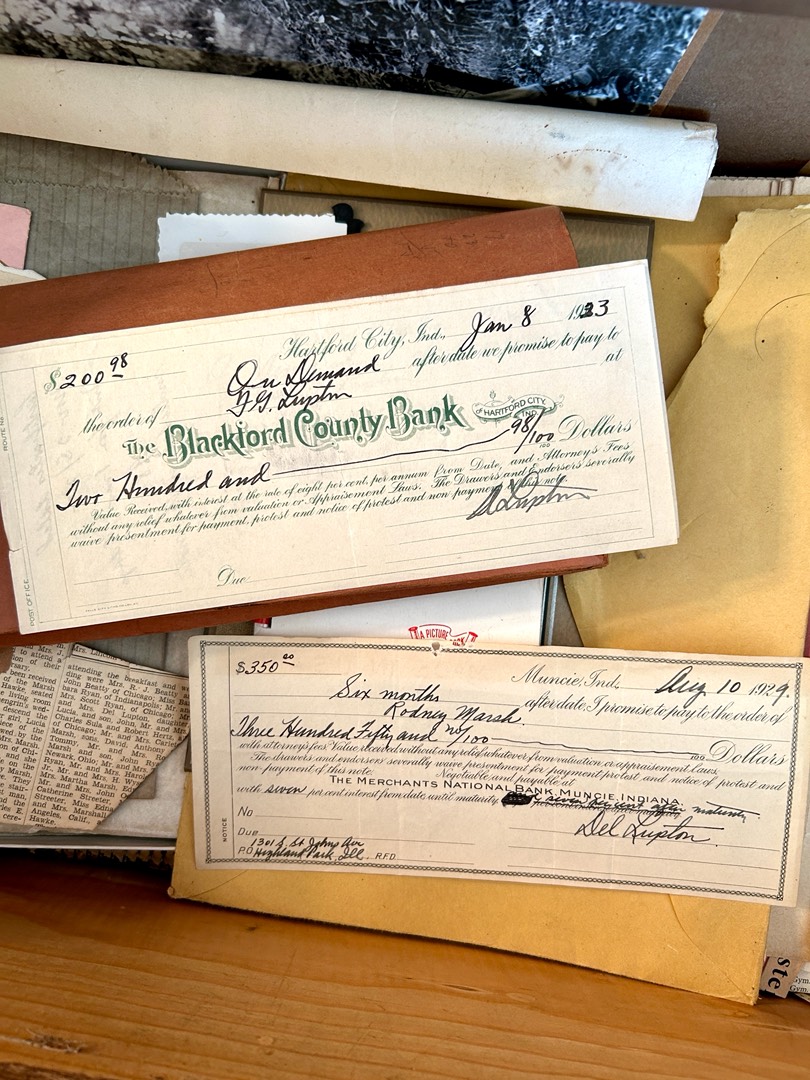 Hartford City, Ind., Jan 8 1923
$200 98
On Demand after date we promise to pay to
the order of F. G. Lupton at
The Blackford County Bank OF HARTFORD CITY, IND.
Two Hundred and 98/100 Dollars
Value Received, with interest at the rate of eight per cent, per annum from Date, and Attorney's Fees,
without any relief whatever from valuation or Appraisement Laws. The Drawers and Endorsers severally
waive presentment for payment, protest and notice of protest and non payment
Lupton
Due
POST OFFICE
ROUTE No
A PICTURE
$350 00
Muncie, Ind., Aug 10 1929.
Six months after date, I promise to pay to the order of
Rodney Marsh
Three Hundred Fifty and no/100 Dollars
with attorneys fees. Value received, without any relief whatever from valuation or appraisement laws.
The drawers and endorsers severally waive presentment for payment, protest and notice of protest and
non-payment of this note. Negotiable and payable at
THE MERCHANTS NATIONAL BANK, MUNCIE, INDIANA.
with seven per cent interest from date until maturity seven per cent after maturity
No
Del Lupton
Due
P.O. 1301 S. St Johns Ave
Highland Park, Ill. R.F.D.
NOTICE
attending the breakfast and
ding were Mrs. R. J. Beatty
John Beatty of Chicago; Miss
bara Ryan of Indianapolis; Mr.
Mrs. Scott Ryan, of Chicago;
Mrs. Del Lupton, daughter
and son, John Mr. and
Charles Sula and Robert Hertz
Marsh, Mr. and Mrs.
Tommy, Mr. David, Anthony
and son, John
Newark, Ohio; Mr. and Mrs.
Ryan, Mr. and Mrs.
Jr. Mr. and Mrs. Harry
Mr. and Mrs. H. W.
They Mr. and Mrs.
Marsh, Mrs. Martha Marsh,
Catherine Streeter,
Streeter, Miss Edna
Mrs. Marshall
E. Angeles, Calif.
Hawke,
ste